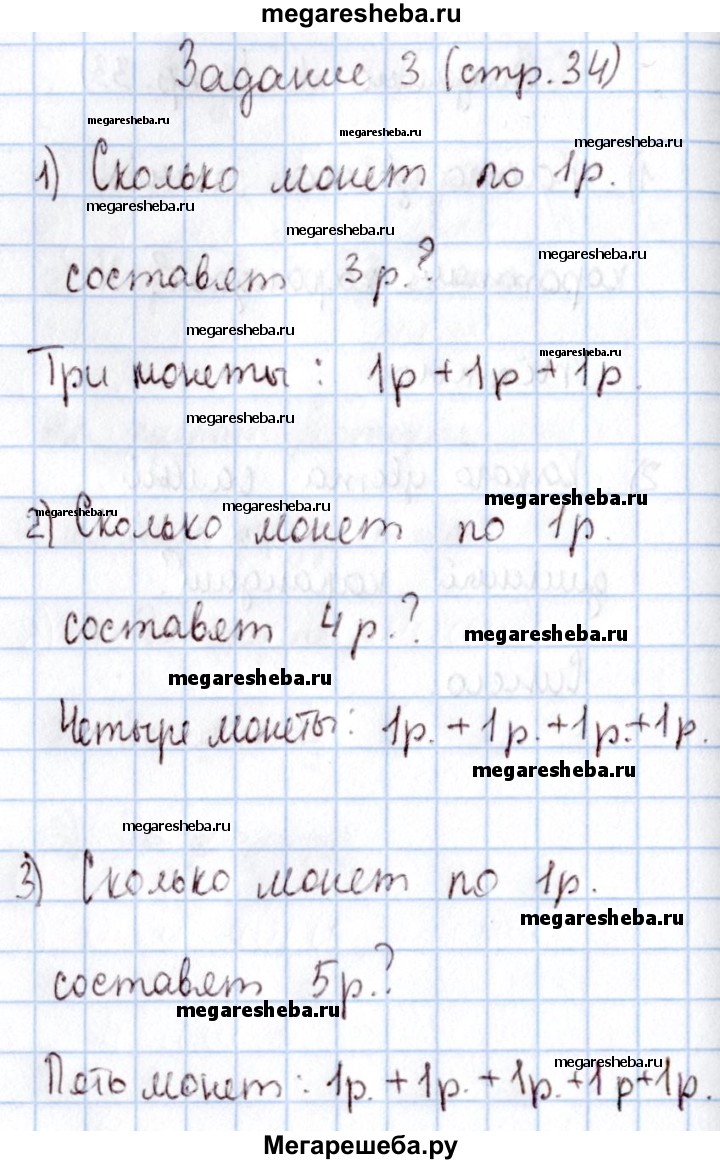 megaresheba.ru
Задание 3 (стр.34)
megaresheba.ru
megaresheba.ru
megaresheba.ru
1) Сколько монет по 1р.
megaresheba.ru
megaresheba.ru
megaresheba.ru
составят 3р.?
megaresheba.ru
megaresheba.ru
Три монеты: 1р + 1р + 1р.
megaresheba.ru
megaresheba.ru
megaresheba.ru
megaresheba.ru
2) Сколько монет по 1р.
составят 4р.?
megaresheba.ru
megaresheba.ru
Четыре монеты: 1р. + 1р. + 1р. + 1р.
megaresheba.ru
megaresheba.ru
3) Сколько монет по 1р.
megaresheba.ru
составят 5р.?
megaresheba.ru
megaresheba.ru
Пять монет: 1р. + 1р. + 1р. + 1р + 1р.
Мегарешеба.ру